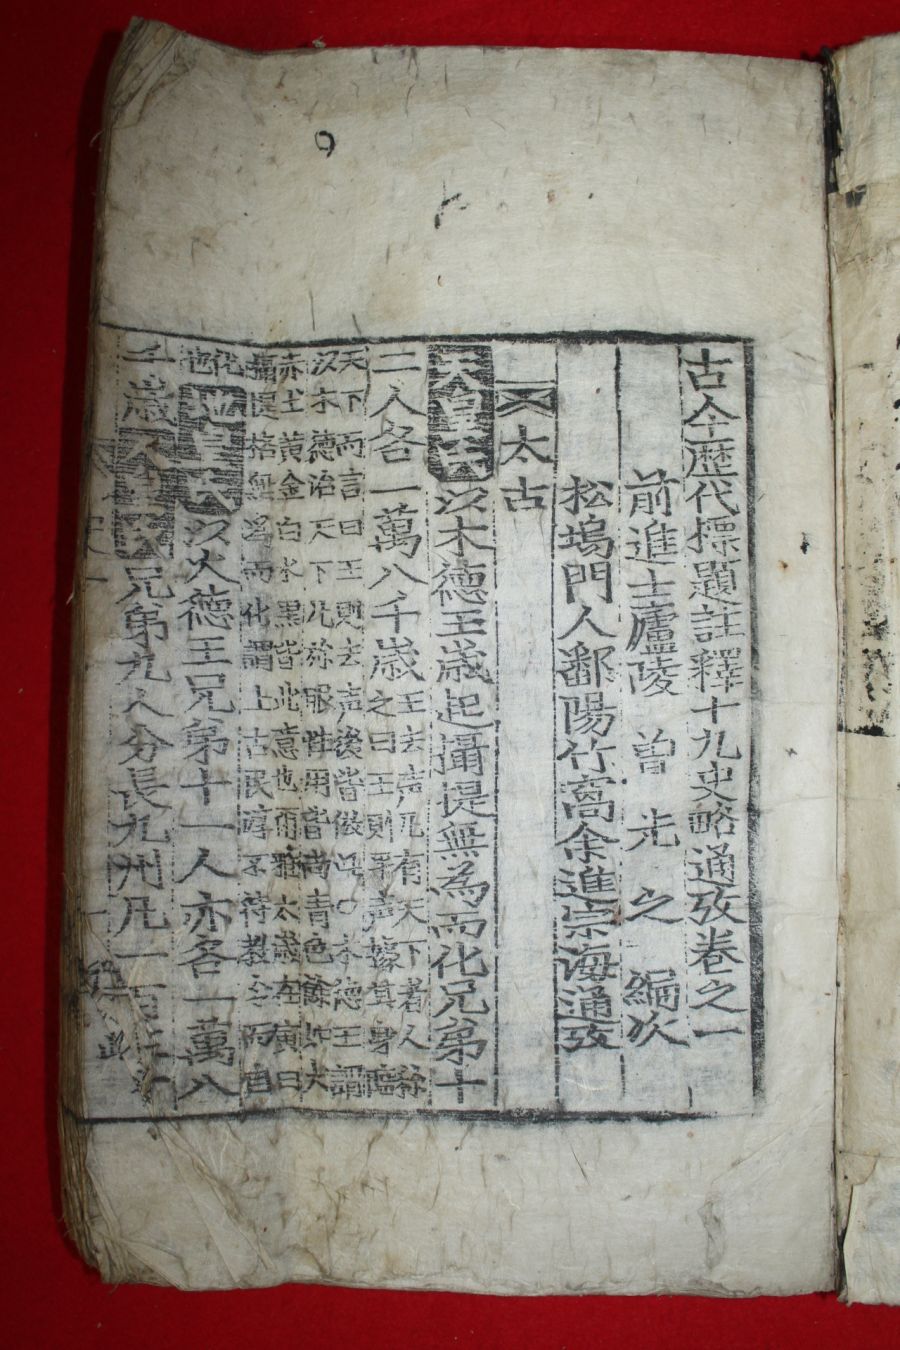 古今歷代標題註釋十九史略通攷卷之一
前進士廬陵 曾先之 編次
松塢門人鄱陽竹窩余進宗海通攷
太古
天皇氏以木德王歲起攝提無爲而化兄弟十
二人各一萬八千歲王去声凡有天下者人稱
之曰王則平声據其身臨
天下而言曰王則去声後皆倣此○木德王謂
以木德治天下凡
服牲用皆尚青色餘
赤土黃金白水黑皆此意也爾雅太歲在寅曰
攝提格無爲而化謂上古民淳不待教令而自
化也地皇氏以火德王兄弟十一人亦各一萬八
千歲人皇氏兄弟九人分長九州凡一百五十